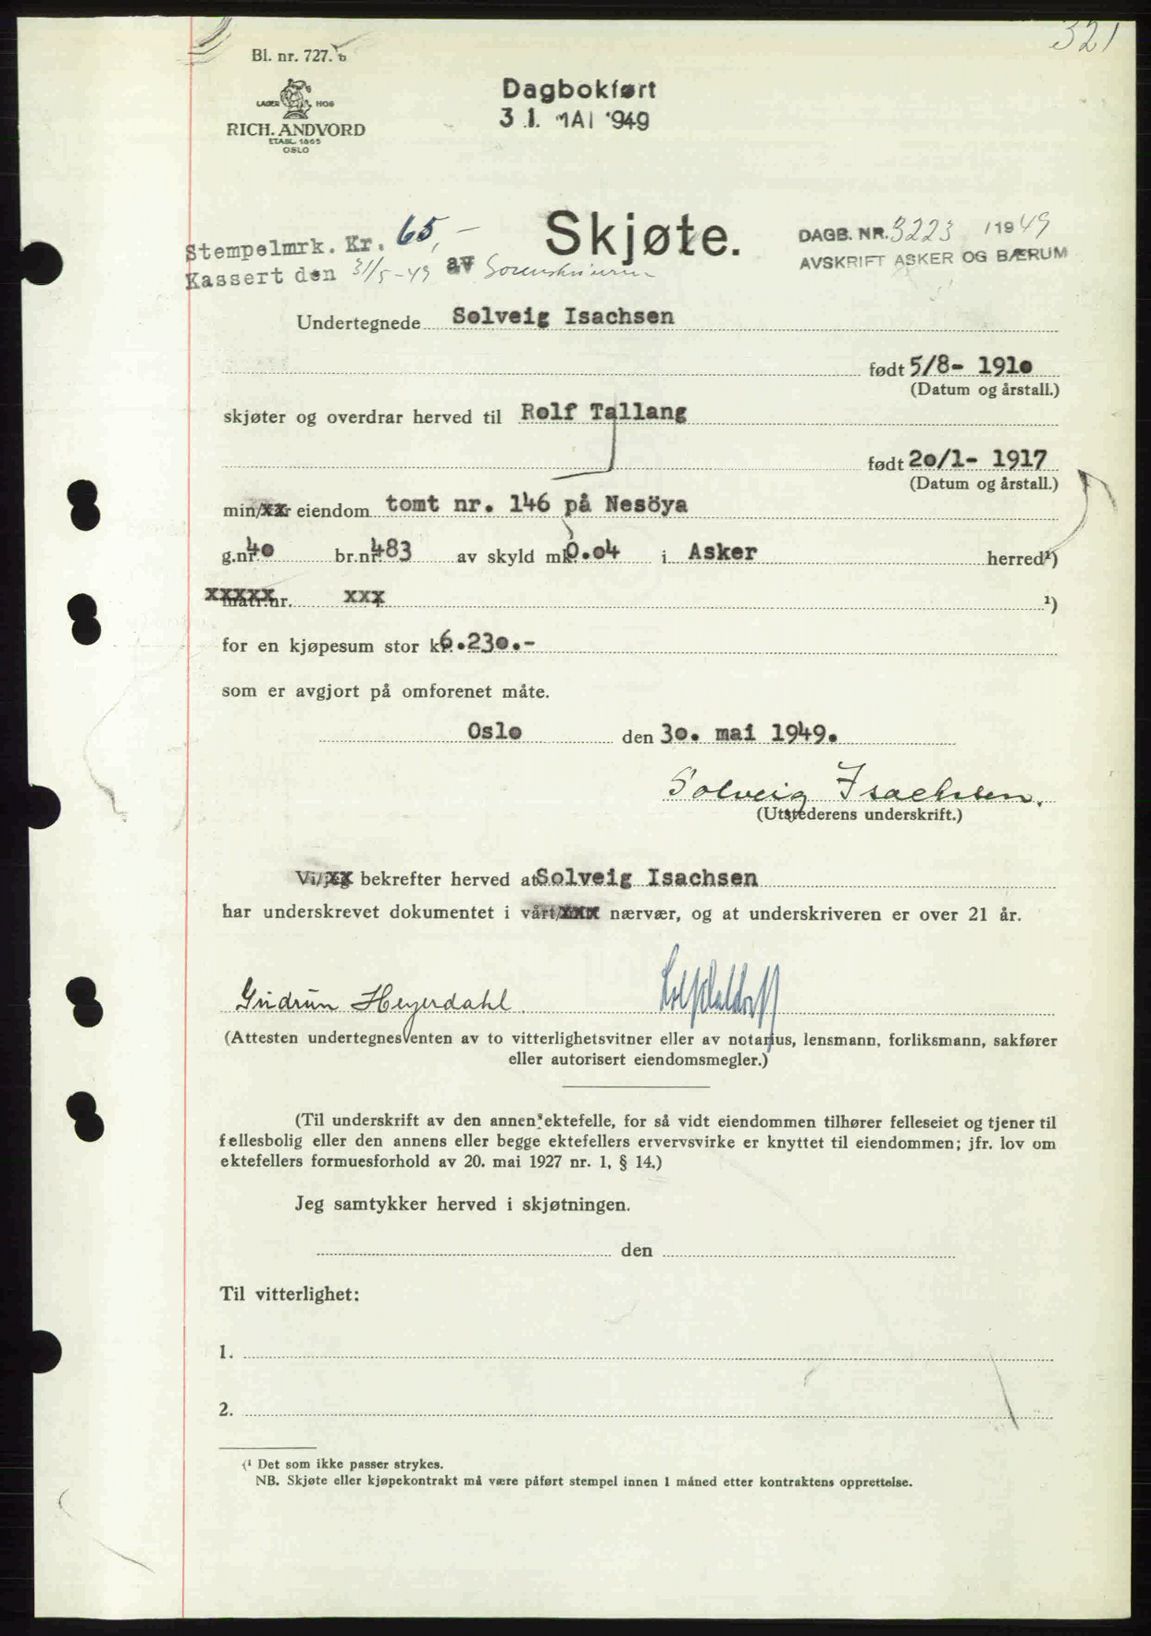 321
Bl. nr. 727. b
Dagbokført
31. MAI 1949
LAGER HOS
RICH. ANDVORD
ETABL. 1865
OSLO
Stempelmrk. Kr. 65,-
Skjøte.
DAGB. NR. 3223 /1949
Kassert den 31/5-49 av Sorenskriveren
AVSKRIFT ASKER OG BÆRUM
Undertegnede Solveig Isachsen
født 5/8- 1910
(Datum og årstall.)
skjøter og overdrar herved til Rolf Tallang
født 20/1- 1917
(Datum og årstall.)
min/xxr eiendom tomt nr. 146 på Nesöya
g.nr. 40 br.nr. 483 av skyld mk. 0.04 i Asker herred¹)
matr.nr. xxx ¹)
for en kjøpesum stor kr. 6.230.-
som er avgjort på omforenet måte.
Oslo den 30. mai 1949.
Solveig Isachsen.
(Utstederens underskrift.)
Vi/jeg bekrefter herved at Solveig Isachsen
har underskrevet dokumentet i vårt/xxx nærvær, og at underskriveren er over 21 år.
Gudrun Heyerdahl.
(Attesten undertegnes enten av to vitterlighetsvitner eller av notarius, lensmann, forliksmann, sakfører
eller autorisert eiendomsmegler.)
(Til underskrift av den annen ektefelle, for så vidt eiendommen tilhører felleseiet og tjener til
fellesbolig eller den annens eller begge ektefellers ervervsvirke er knyttet til eiendommen; jfr. lov om
ektefellers formuesforhold av 20. mai 1927 nr. 1, § 14.)
Jeg samtykker herved i skjøtningen.
den
Til vitterlighet:
1.
2.
(¹ Det som ikke passer strykes.
NB. Skjøte eller kjøpekontrakt må være påført stempel innen 1 måned etter kontraktens opprettelse.